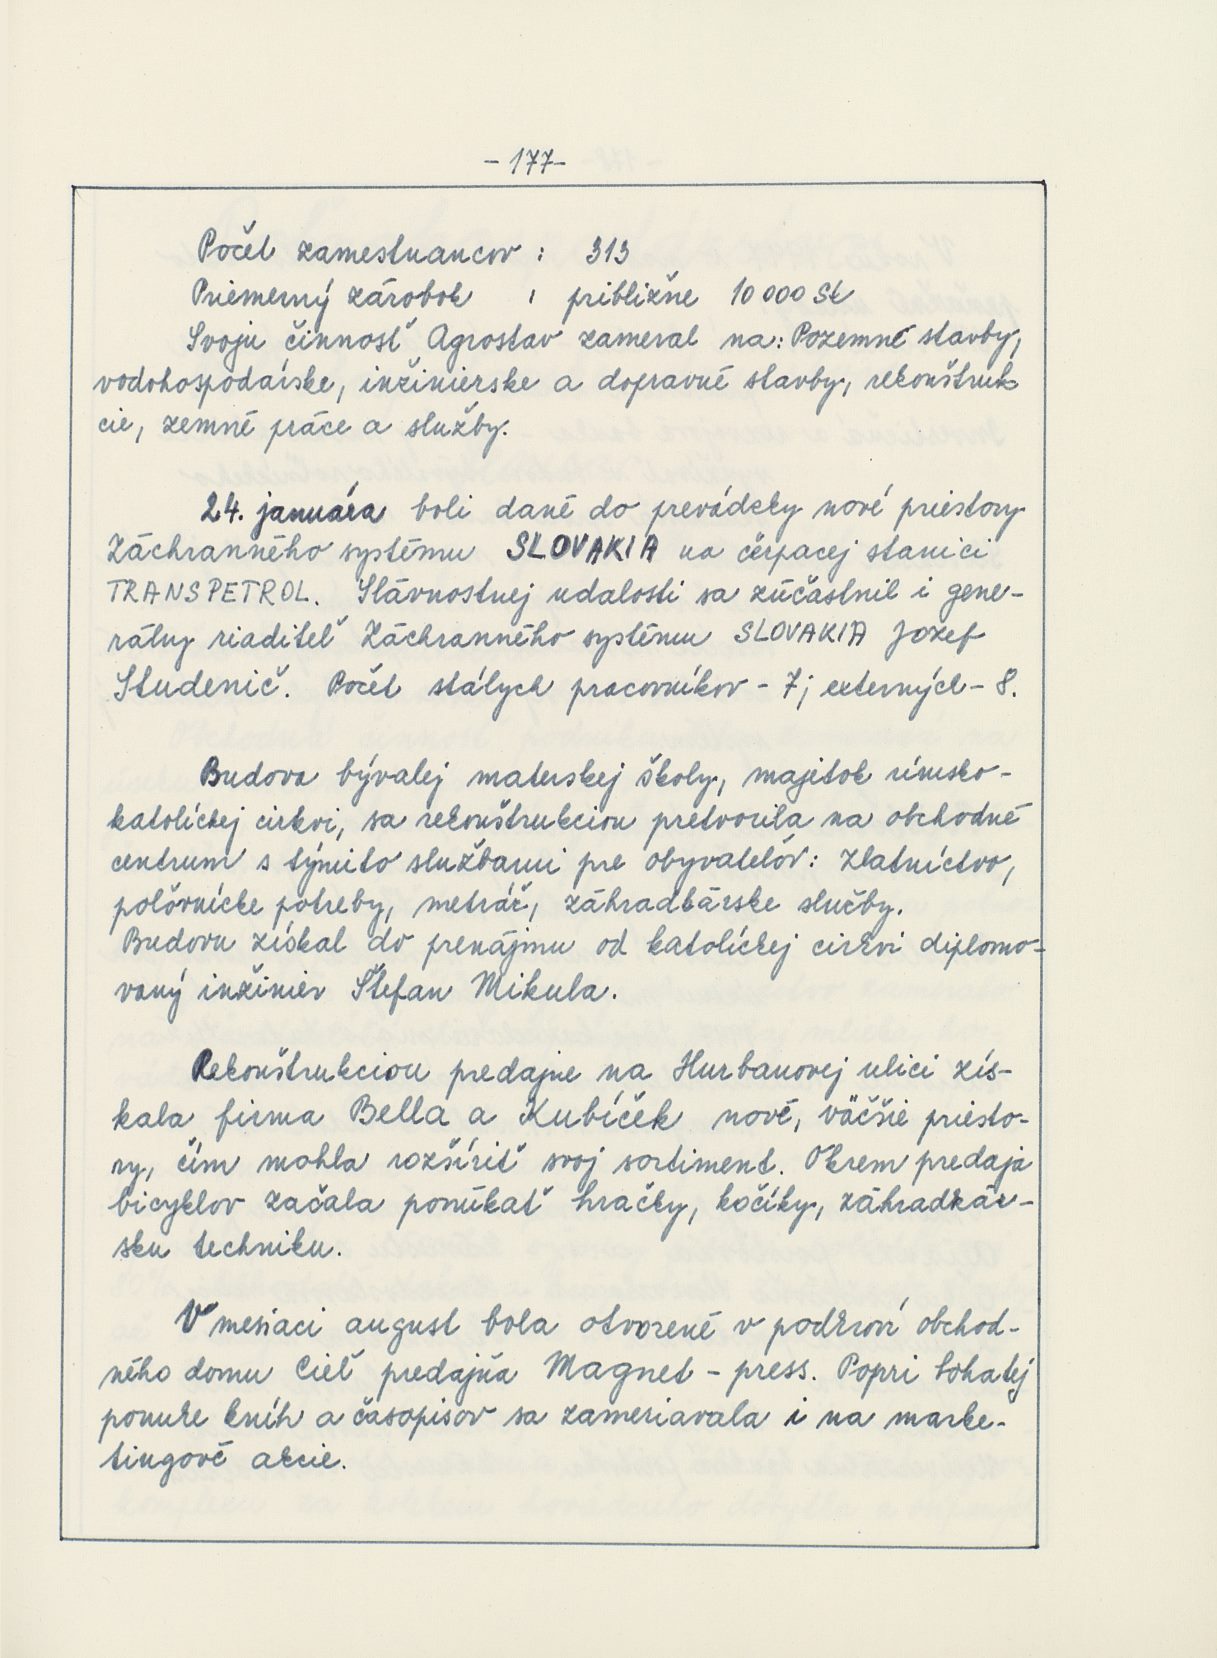 - 177-
Počet zamestnancov : 313
Priemerný zárobok : približne 10 000 Sk
Svoju činnosť Agrostav zameral na: Pozemné stavby,
vodohospodárske, inžinierske a dopravné stavby, rekonštruk
cie, zemné práce a služby.
24. januára boli dané do prevádzky nové priestory
Záchranného systému SLOVAKIA na čerpacej stanici
TRANSPETROL. Slávnostnej udalosti sa zúčastnil i gene-
rálny riaditeľ Záchranného systému SLOVAKIA Jozef
Studenič. Počet stálych pracovníkov - 7; externých - 8.
Budova bývalej materskej školy, majetok rímsko-
katolíckej cirkvi, sa rekonštrukciou pretvorila na obchodné
centrum s týmito službami pre obyvateľov: Zlatníctvo,
poľovnícke potreby, metráž, záhradkárske služby.
Budovu získal do prenájmu od katolíckej cirkvi diplomo-
vaný inžinier Štefan Mikula.
Rekonštrukciou predajne na Hurbanovej ulici zís-
kala firma Bella a Kubíček nové, väčšie priesto-
ry, čím mohla rozšíriť svoj sortiment. Okrem predaja
bicyklov začala ponúkať hračky, kočíky, záhradkár-
sku techniku.
V mesiaci august bola otvorené v podkroví obchod-
ného domu Cieľ predajňa Magnet - press. Popri bohatej
ponuke kníh a časopisov sa zameriavala i na marke-
tingové akcie.